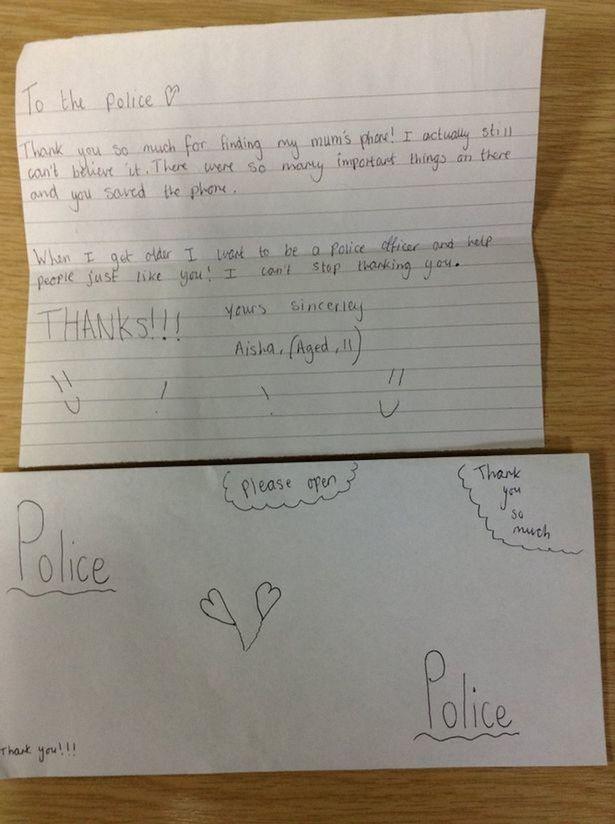 To the police
Thank you so much for finding my mum's phone! I actually still
can't believe it. There were so many important things on there
and you saved the phone.
When I get older I want to be a police officer and help
people just like you! I can't stop thanking you.
THANKS!!!
yours sincerley
Aisha, (Aged, 11)
please open
Thank
you
so
much
Police
Police
Thank you!!!